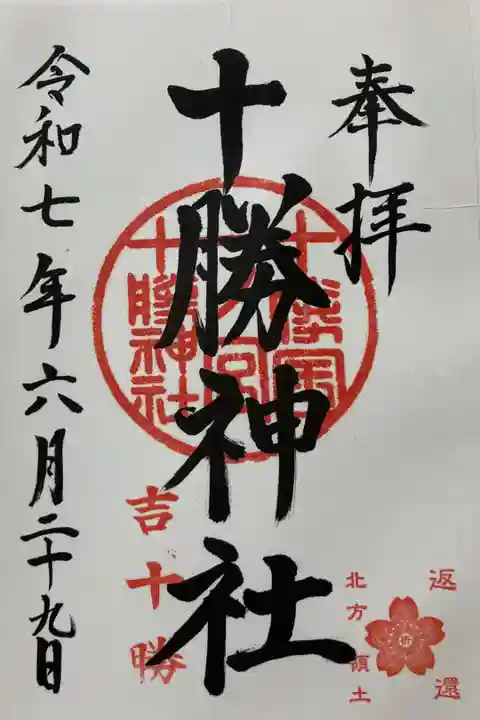 奉拝
十勝神社
令和七年六月二十九日
十勝神社
吉十勝
北方領土
返還
祈